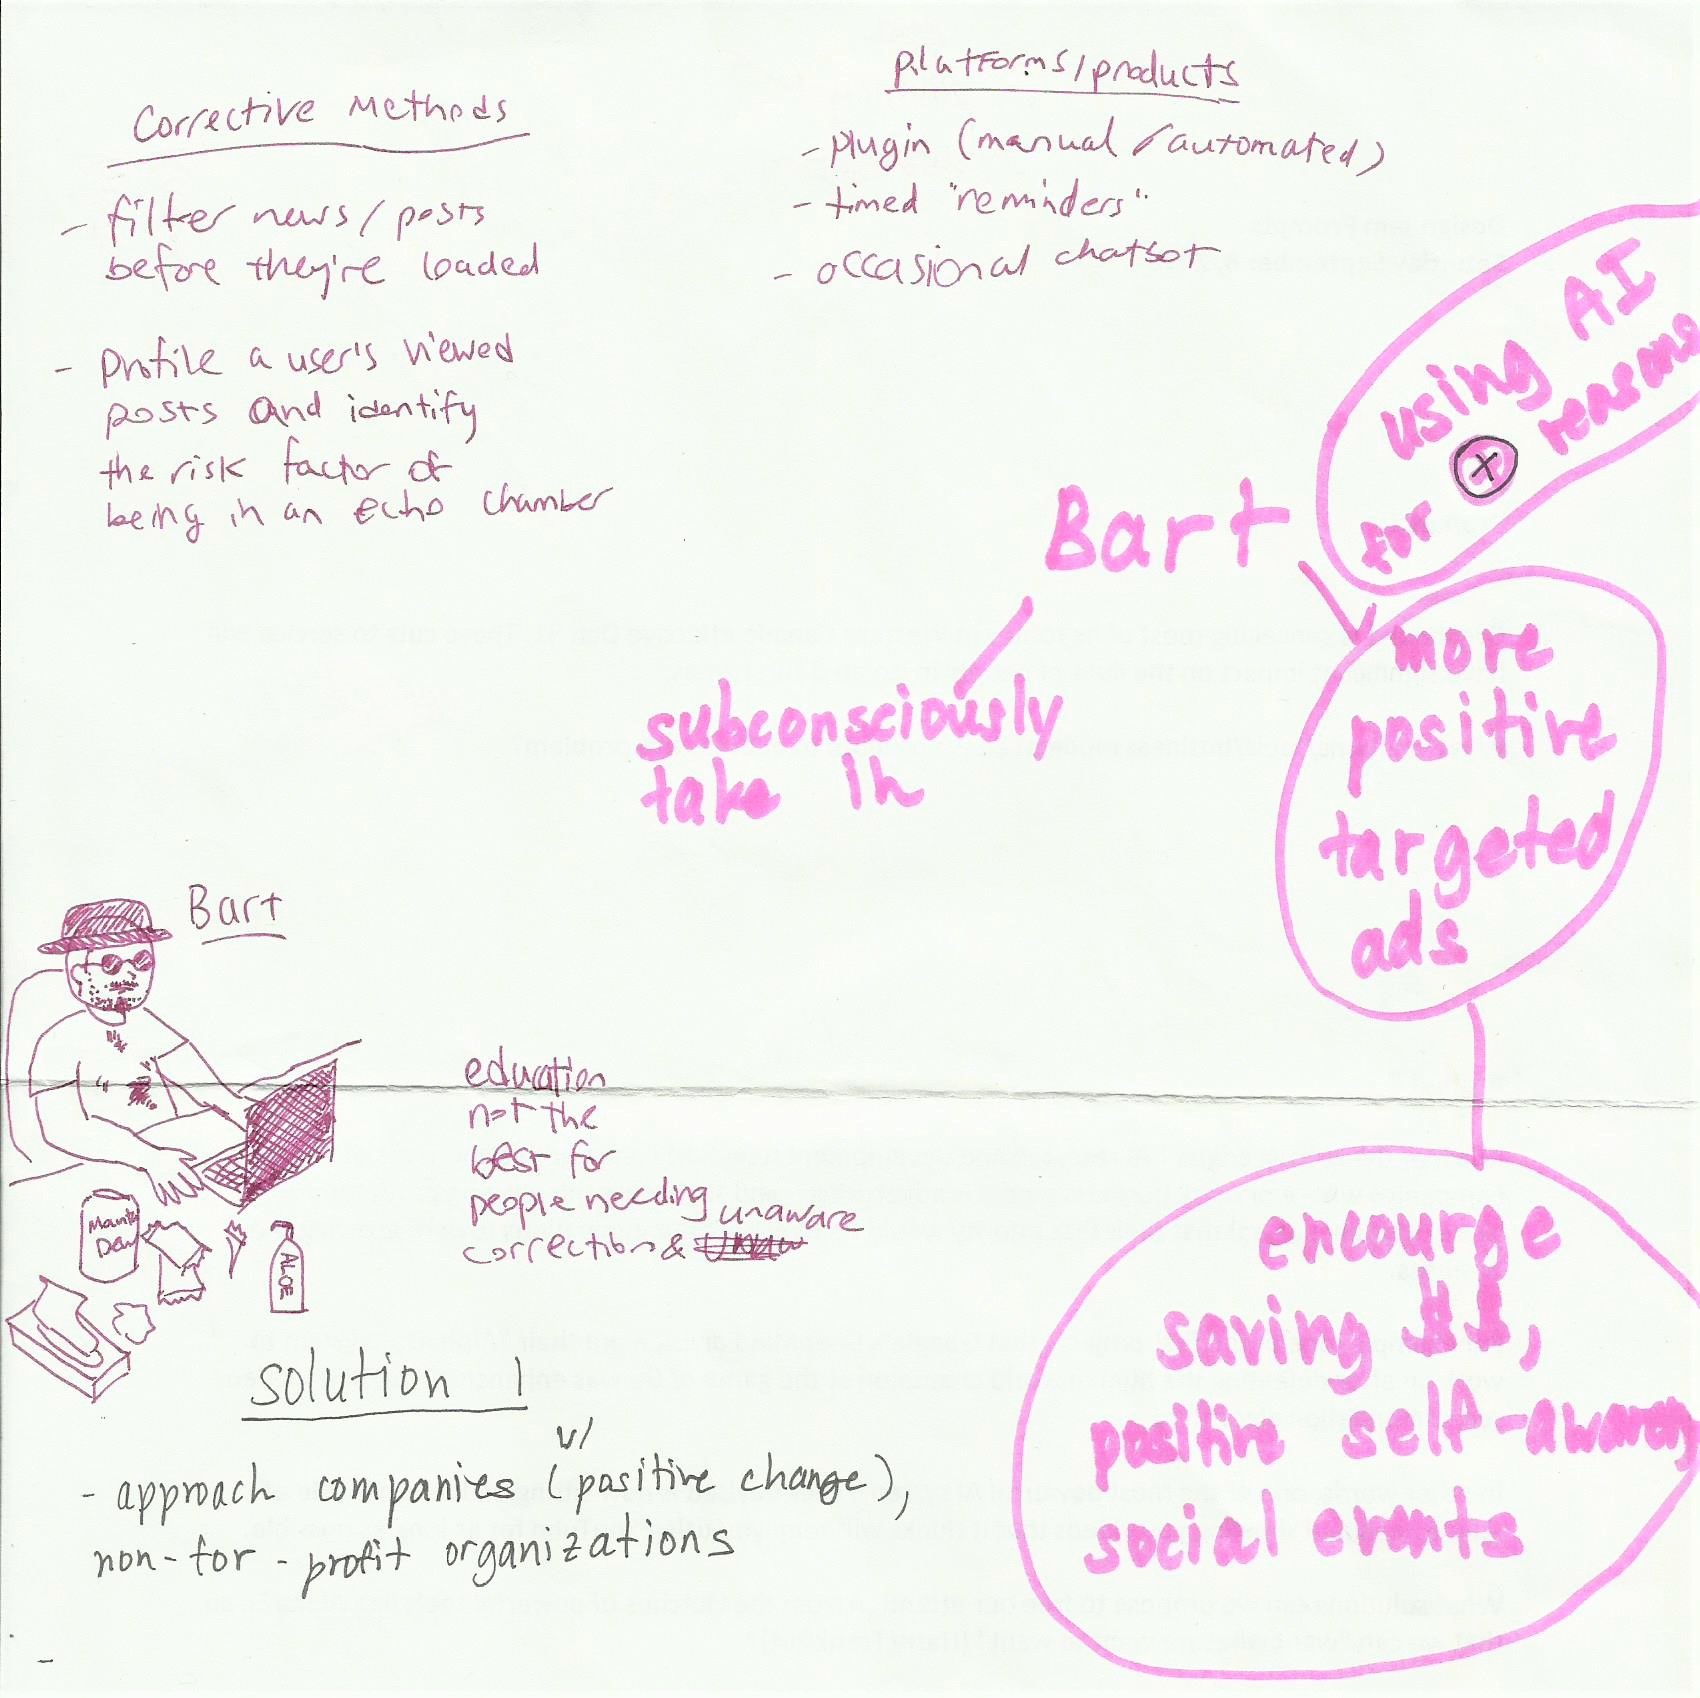 Corrective Methods
- filter news/posts
before they're loaded
- Profile a user's viewed
posts and identify
the risk factor of
being in an echo chamber
platforms/products
- plugin (manual/automated)
- timed "reminders"
- occasional chatbot
using AI
for + reasons
Bart
more
positive
targeted
ads
subconsciously
take in
encourge
saving $$,
positive self-awareness
social events
Bart
education
not the
best for
people needing unaware
correction &
ALOE
solution 1
w/
- approach companies (positive change),
non-for-profit organizations